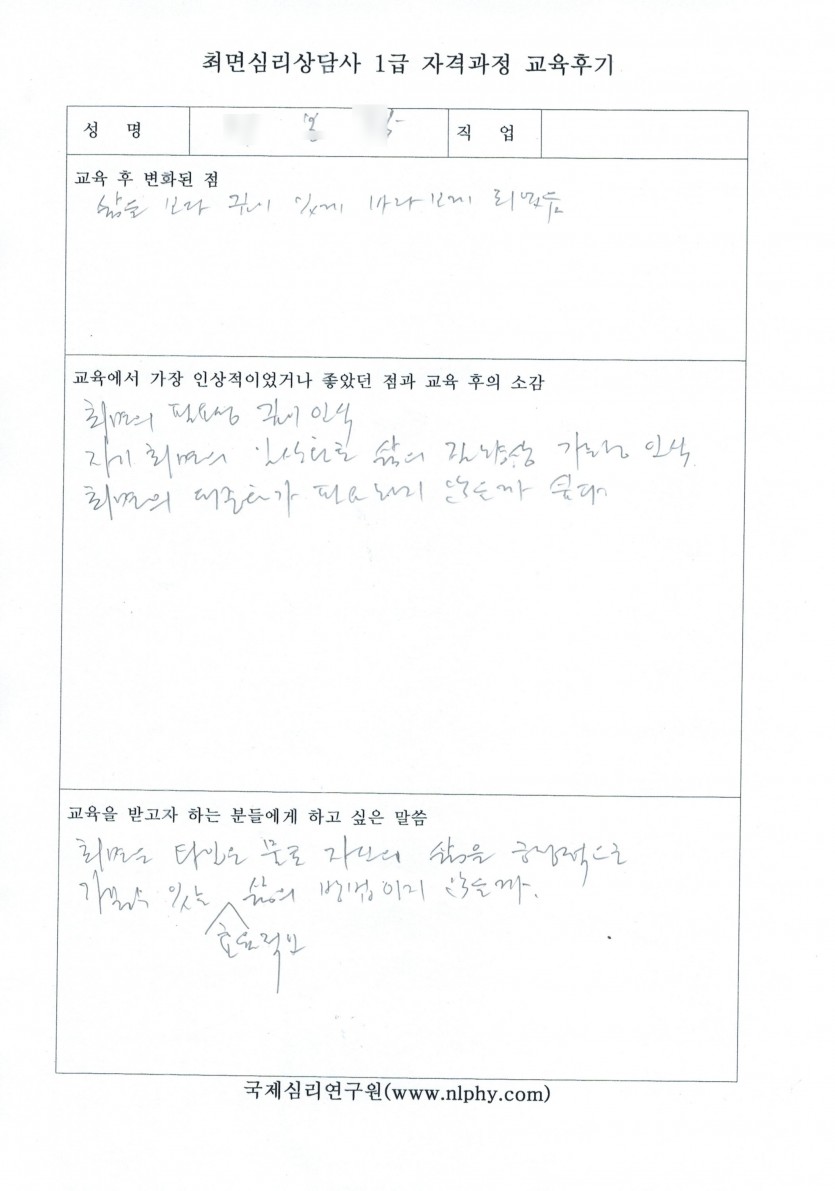 최면심리상담사 1급 자격과정 교육후기
성 명
직 업
교육 후 변화된 점
삶을 보다 깊이 있게 바라보게 되었음
교육에서 가장 인상적이었거나 좋았던 점과 교육 후의 소감
최면의 필요성 깊이 인식
자기 최면의 일상화로 삶의 인식
최면의 대중화가 필요하지 않을까 싶다.
교육을 받고자 하는 분들에게 하고 싶은 말씀
최면은 타인은 물론 자신의 삶을 긍정적으로
가꿀수 있는 삶의 방법이지 않을까.
효율적인
국제심리연구원(www.nlphy.com)